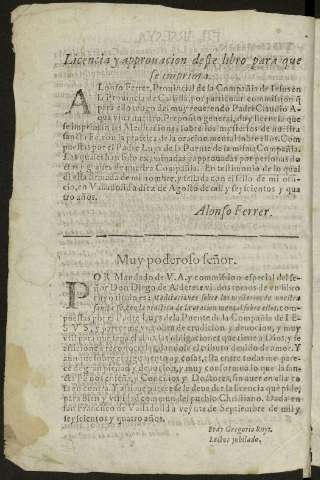 Licencia y approuacion deste libro para que
se imprima.
ALonso Ferrer, Prouincial de la Compañia de Iesus en
la Prouincia de Castilla, por particular commission q̃
para ello tengo del muy reuerendo Padre Claudio A-
qua viua nuestro Preposito general, doy licencia que
se impriman las Meditaciones sobre los mysterios de nuestra
santa Fe, con la practica de la oracion mental sobre ellos. Com
puestas por el Padre Luys de la Puente de la misma Compañia.
Las quales han sido examinadas y approuadas por personas do
ctas y graues de nuestra Compañia. En testimonio de lo qual
di esta firmada de mi nombre, y sellada con el sello de mi ofi-
cio, en Valladolid a diez de Agosto de mil y seyscientos y qua
tro años.
Alonso Ferrer.
Muy poderoso señor.
POR Mandado de V.A. y commission especial del se-
ñor Don Diego de Alderete vi dos tomos de un libro
cuyo titulo es: Meditaciones sobre los mysterios de nuestra
santa Fe, con la practica de la oracion mental sobre ellos, com
puestas por el Padre Luys de la Puente de la Compañia de IE-
SVS, y es obra de erudicion y deuocion, y muy
vtil para que el alma las obligaciones que tiene a Dios, y se
deuido de amor. Y
cosas, esta entre todas me pare-
ce y muy conforme lo que la san-
cta y Doctores, sin auer en ella co
sa se le deue dar la licencia que pide,
para bien y vtilidad comun del pueblo Christiano. Dada en
san Francisco de Valladolid a veynte de Setiembre de mil y
seyscientos y quatro años.
Fray Gregorio Ruyz.
Lector jubilado.